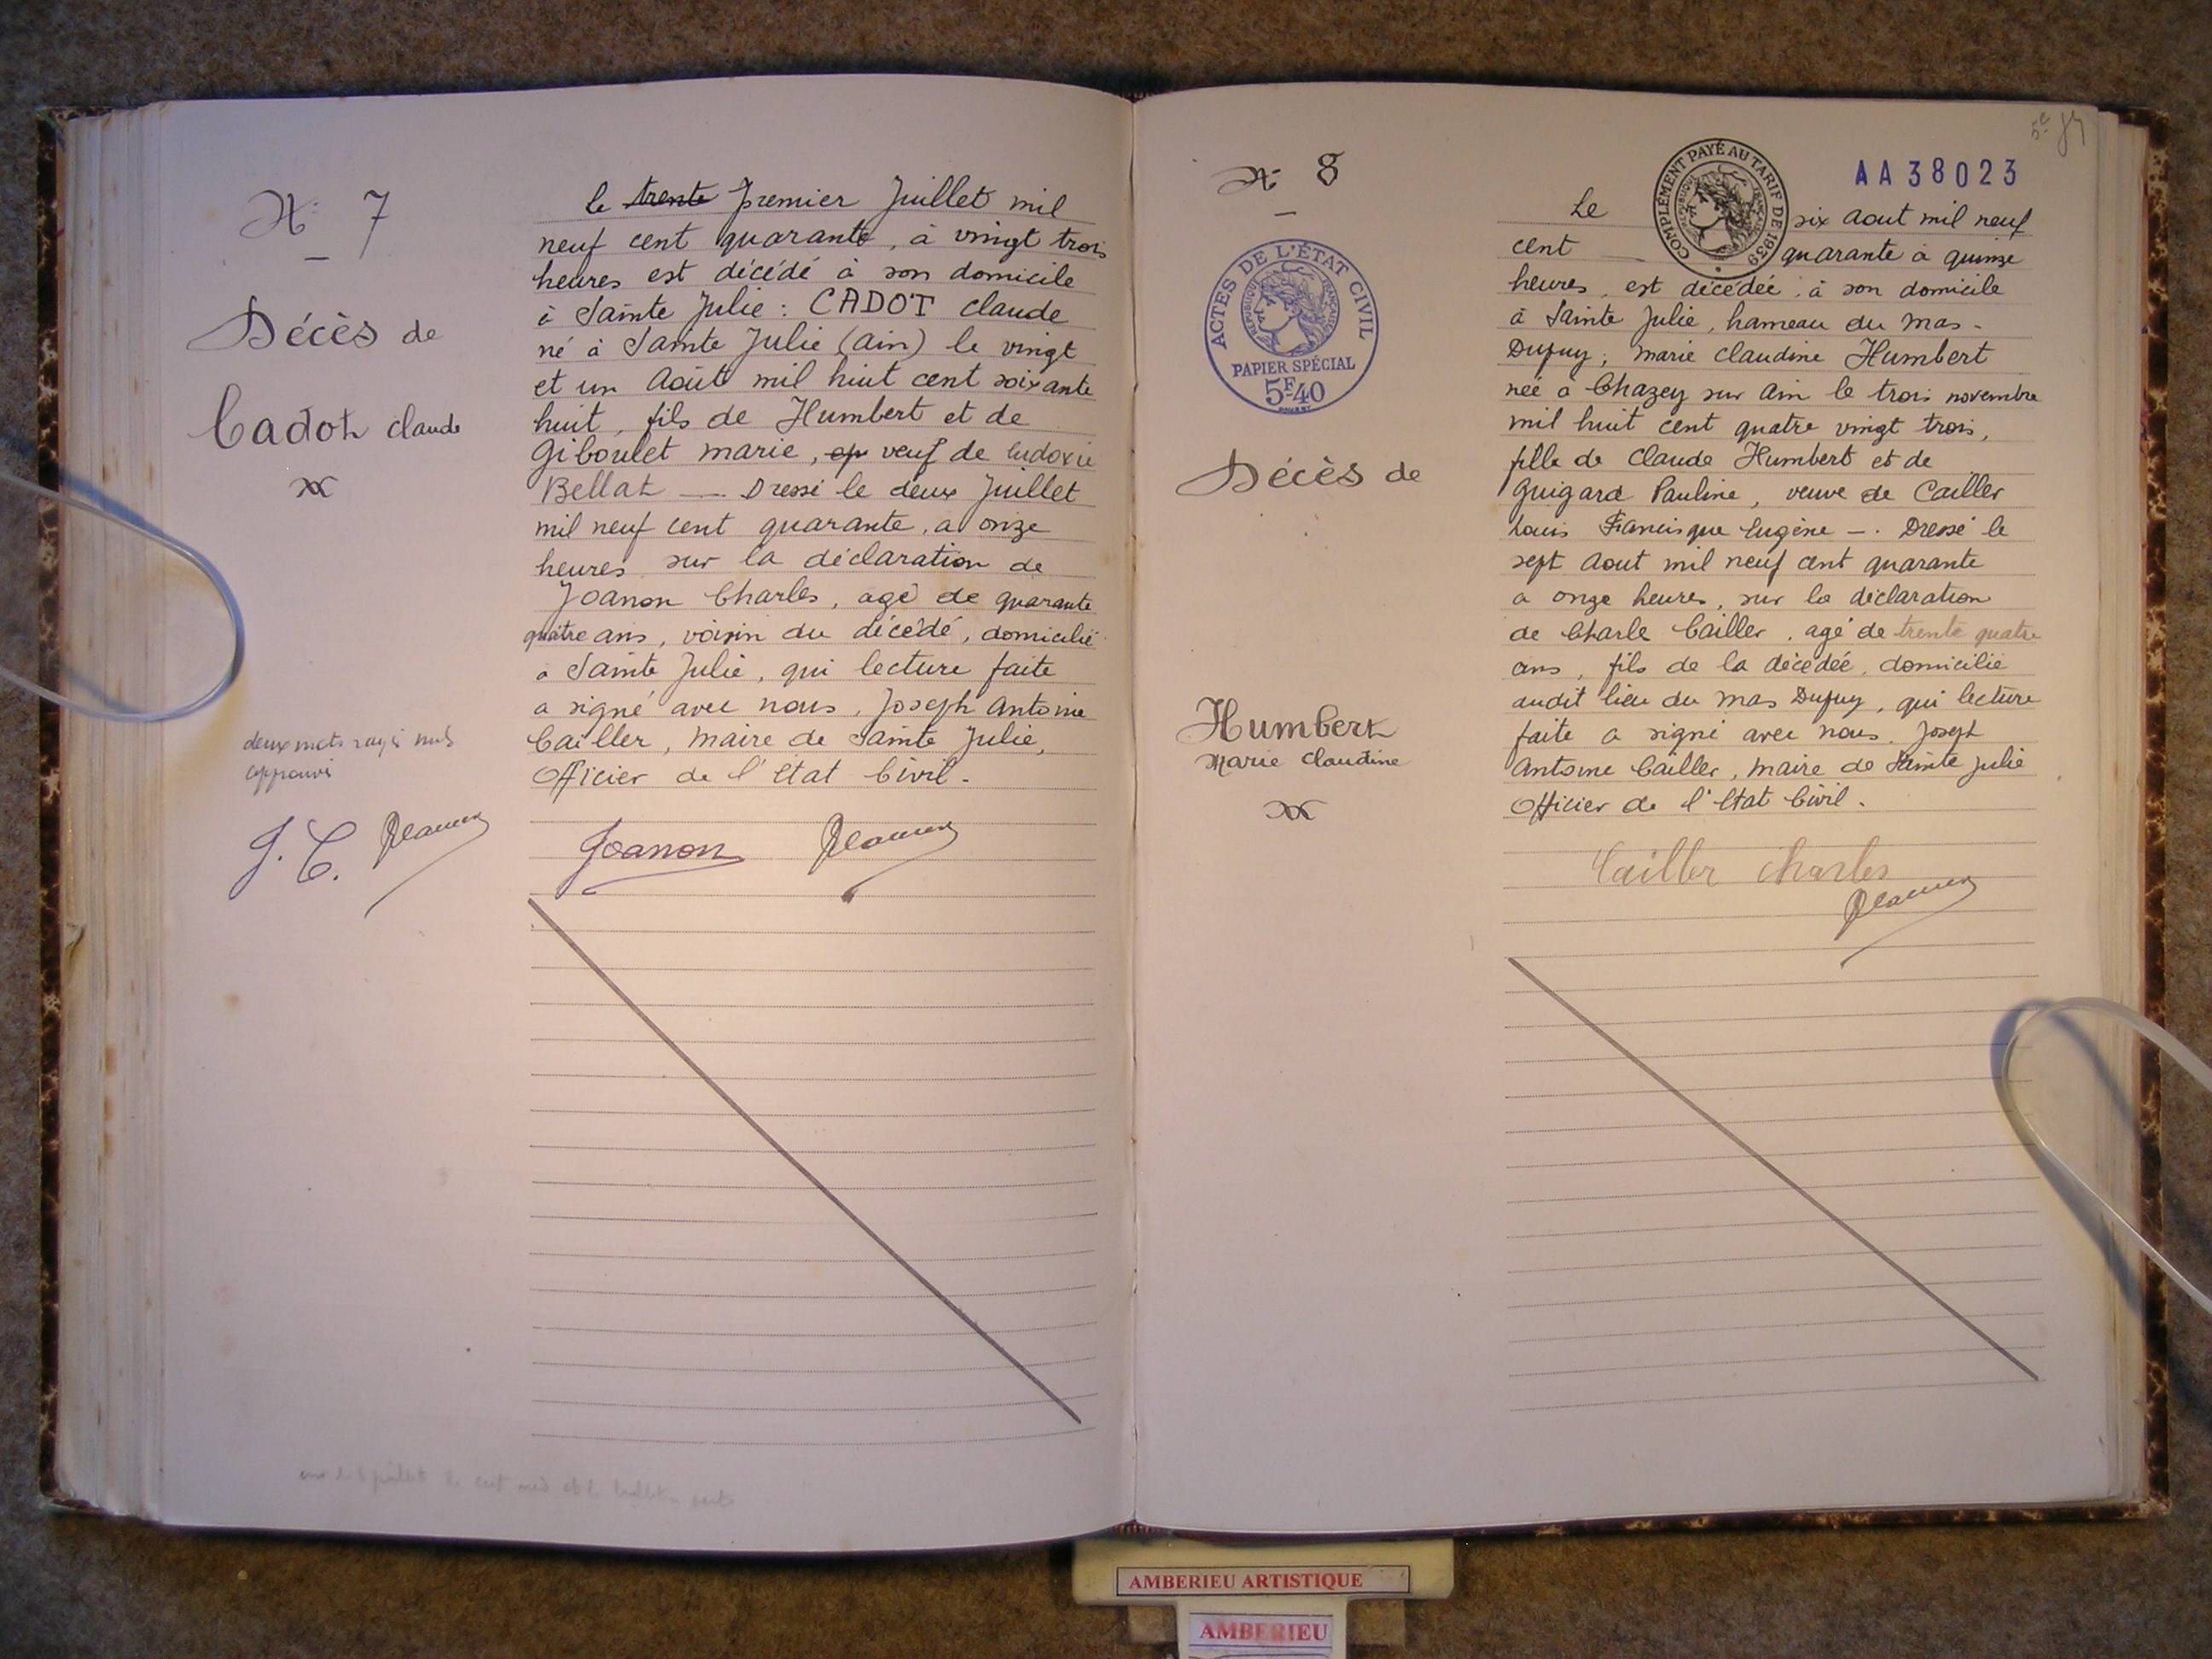 N° 7
Décès de
Cadot Claude
le trente premier Juillet mil
neuf cent quarante, à vingt trois
heures est décédé à son domicile
à Sainte Julie : CADOT Claude
né à Sainte Julie (Ain) le vingt
et un Août mil huit cent soixante
huit, fils de Humbert et de
Giboulet Marie, ep veuf de Ludovie
Bellat — Dressé le deux Juillet
mil neuf cent quarante, a onze
heures sur la déclaration de
Joanon Charles, agé de quarante
quatre ans, voisin du décédé, domicilié
à Sainte Julie, qui lecture faite
a signé avec nous, Joseph Antoine
Cailler, Maire de Sainte Julie,
Officier de l'Etat Civil.
deux mots rayés nuls
approuvé
J. C.
Joanon
N° 8
ACTES DE L'ÉTAT CIVIL
RÉPUBLIQUE FRANÇAISE
PAPIER SPÉCIAL
5F40
Décès de
Humbert
Marie Claudine
5e
AA38023
COMPLÉMENT PAYÉ AU TARIF DE 1939
RÉPUBLIQUE FRANÇAISE
Le six Aout mil neuf
cent — quarante à quinze
heures, est décédée, à son domicile
à Sainte Julie, hameau du Mas-
Dupuy, Marie Claudine Humbert
née à Chazey sur Ain le trois novembre
mil huit cent quatre vingt trois,
fille de Claude Humbert et de
Guigard Pauline, veuve de Cailler
Louis Francisque Eugène —. Dressé le
sept Aout mil neuf cent quarante
a onze heures, sur la déclaration
de Charle Cailler, agé de trente quatre
ans, fils de la décédée, domicilié
audit lieu du Mas Dupuy, qui lecture
faite a signé avec nous. Joseph
Antoine Cailler, Maire de Sainte Julie
Officier de l'Etat Civil.
Cailler Charles
AMBERIEU ARTISTIQUE
AMBERIEU